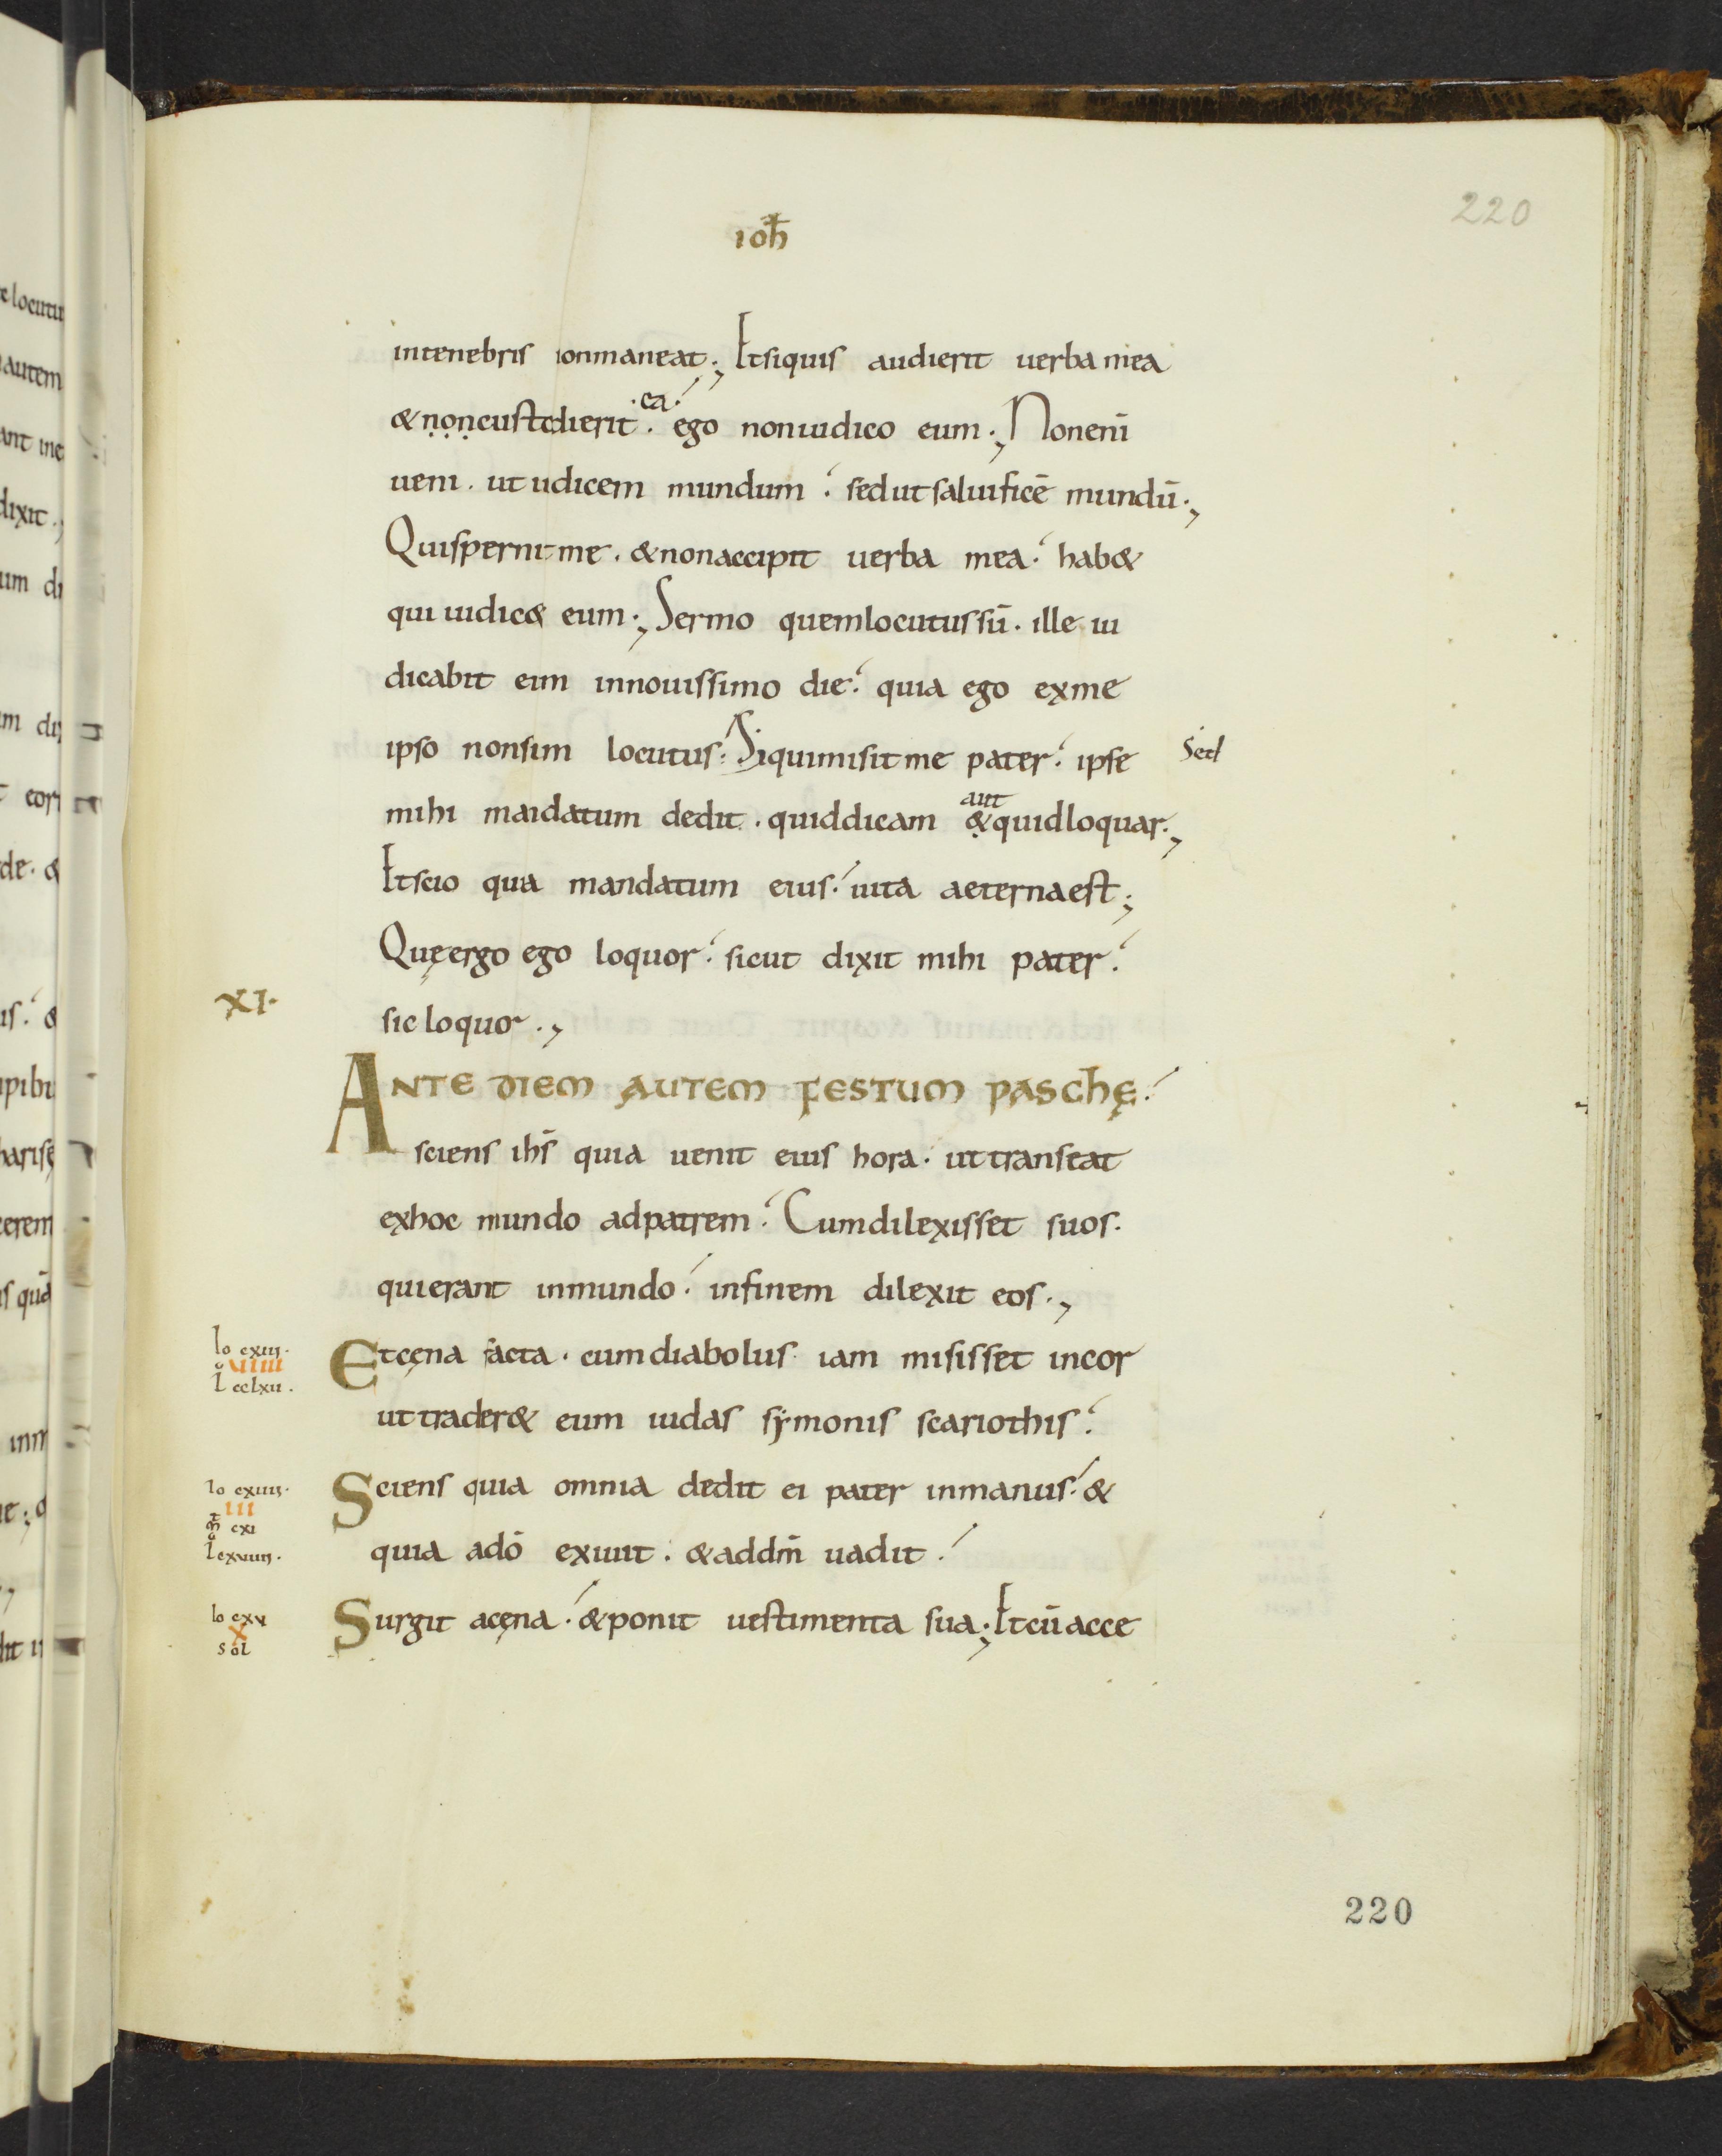 220
ioħ
intenebris nonmaneat·, Etsiquis audierit uerba mea
·ea·
& ṇọṇcustodierit · ego noniudico eum·, Nonenī
ueni · ut iudicem mundum · sed ut saluificē mundū·,
Quispernit me · & nonaccipit uerba mea · hab&
qui iudic& eum·, Sermo quemlocutussū · ille iu
dicabit eum innouissimo die · quia ego exme
ipso nonsum locutus · Siquimisit me pater · ipse Sed
aut
mihi mandatum dedit · quiddicam & quidloquar·,
Etscio quia mandatum eius · uita aeternaest·,
Quęergo ego loquor · sicut dixit mihi pater ·
XI·
sic loquor·,
ANTE DIEM AUTEM FESTUM PASCHĘ ·
sciens ihs̄ quia uenit eius hora · ut transeat
exhoc mundo adpatrem · Cumdilexisset suos ·
quierant inmundo · infinem dilexit eos·,
Io cxiii·
uiiii
L cclxii·
Etcęna facta · cumdiabolus iam misisset incor
ut trader& eum iudas sẏmonis scariothis ·
Io cxiiii·
iii
m̄t cxi
L cxuiiii·
Sciens quia omnia dedit ei pater inmanus · &
quia adō exiuit · & addm̄ uadit ·
Io cxv
X
sol
Surgit acęna · & ponit uestimenta sua·, Etcū acce
220